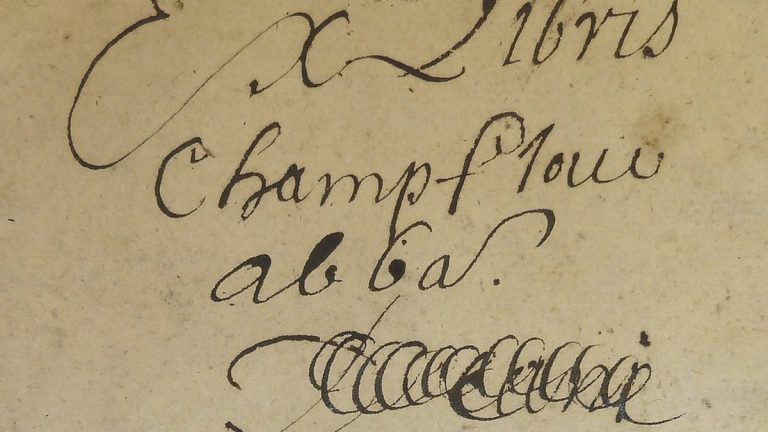 Ex Libris
Champflour
abbas.